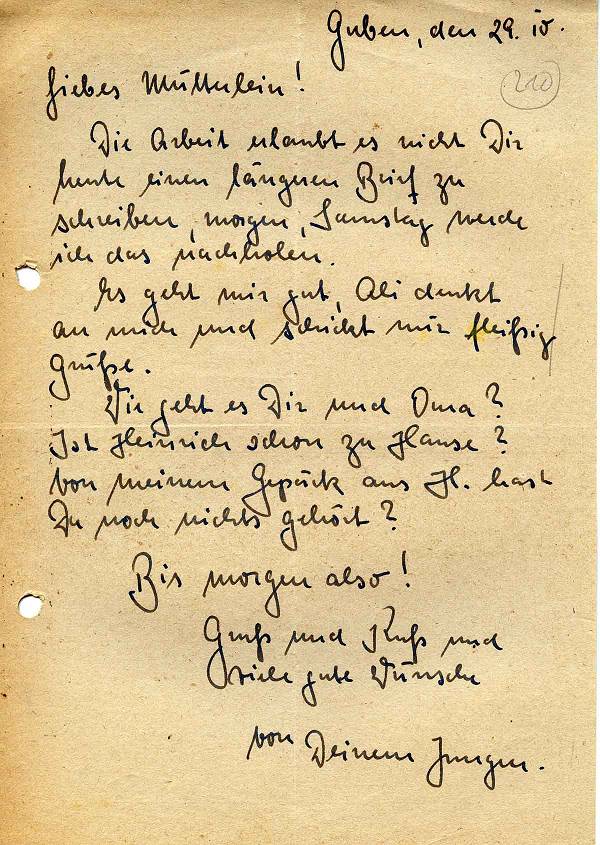 Guben, den 29. IV.
210
Liebes Mütterlein!
Die Arbeit erlaubt es nicht Dir
heute einen längeren Brief zu
schreiben, morgen, Samstag werde
ich das nachholen.
Es geht mir gut, Ali denkt
an mich und schickt mir fleißig
Grüße.
Wie geht es Dir und Oma?
Ist Heinrich schon zu Hause?
Von meinem Gepäck aus H. hast
Du noch nichts gehört?
Bis morgen also!
Gruß und Kuß und
viele gute Wünsche
von Deinem Jungen.